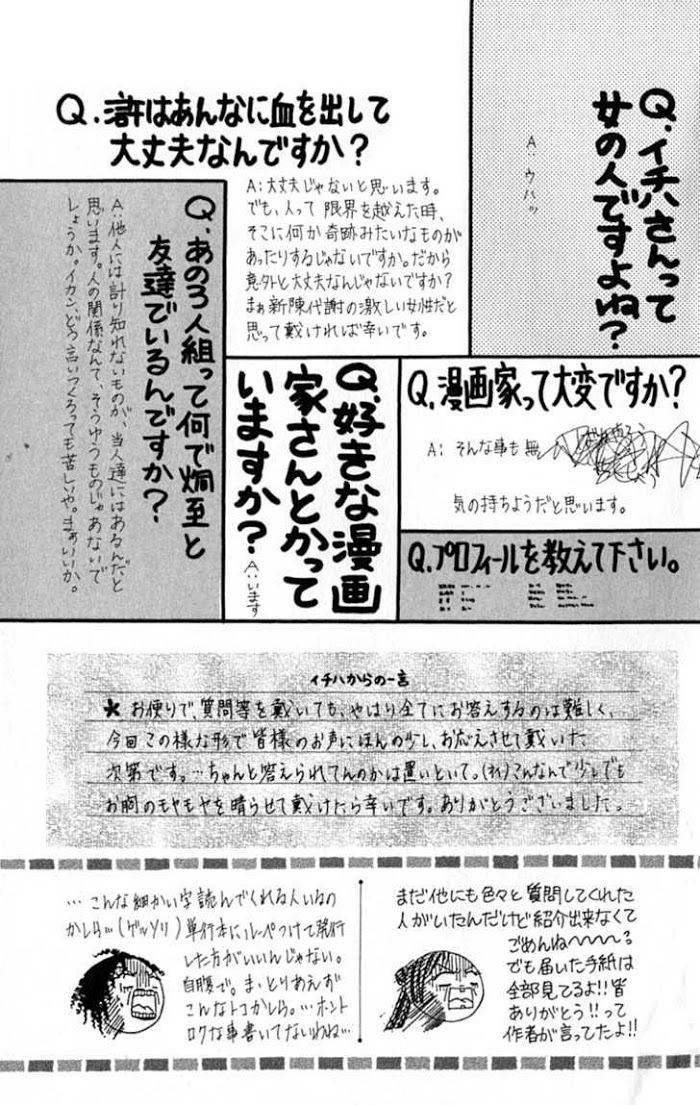 Q.イチハさんって
女の人ですよね？
A:ウハッ
Q.滸はあんなに血を出して
大丈夫なんですか？
A:大丈夫じゃないと思います。
でも、人って限界を越えた時、
そこに何か奇跡みたいなものが
あったりするじゃないですか。だから
意外と大丈夫なんじゃないですか？
まぁ新陳代謝の激しい女性だと
思って戴ければ幸いです。
Q.あの3人組って何で炯至と
友達でいるんですか？
A:他人には計り知れないものが、当人達にはあるんだと
思います。人の関係なんて、そうゆうものじゃあないで
しょうか。イカン、どう言いつくろっても苦しいや。まぁいいか。
Q.漫画家って大変ですか？
A:そんな事も無
気の持ちようだと思います。
Q.好きな漫画
家さんとかって
いますか？
A:います
Q.プロフィールを教えて下さい。
イチハからの一言
★お便りで、質問等を戴いても、やはり全てにお答えするのは難しく、
今回この様な形で皆様のお声にほんの少し、お応えさせて戴いた
次第です。…ちゃんと答えられてんのかは置いといて。(オイ)こんなんで少しでも
お胸のモヤモヤを晴らせて戴けたら幸いです。ありがとうございました。
まだ他にも色々と質問してくれた
人がいたんだけど紹介出来なくて
ごめんね〜〜〜？
でも届いた手紙は
全部見てるよ!!皆
ありがとう!!って
作者が言ってたよ!!
…こんな細かい字読んでくれる人いるの
かしら…(ゲッソリ)単行本にルーペつけて発行
した方がいいんじゃない。
自腹で。ま、とりあえず
こんなトコかしら。…ホント
ロクな事書いてないわね…